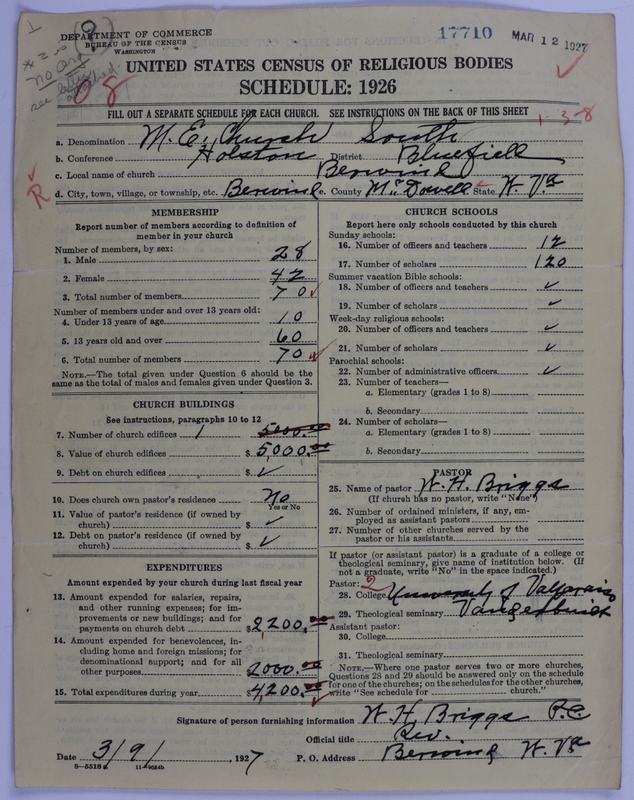 DEPARTMENT OF COMMERCE
BUREAU OF THE CENSUS
WASHINGTON
17710
MAR 12 1927
UNITED STATES CENSUS OF RELIGIOUS BODIES
SCHEDULE: 1926
FILL OUT A SEPARATE SCHEDULE FOR EACH CHURCH. SEE INSTRUCTIONS ON THE BACK OF THIS SHEET
1-3-8
a. Denomination M. E. Church South
b. Conference Holston District Bluefield
c. Local name of church Berwind
d. City, town, village, or township, etc. Berwind e. County McDowell State W. Va
R
MEMBERSHIP
Report number of members according to definition of
member in your church
Number of members, by sex:
1. Male 28
2. Female 42
3. Total number of members 70
Number of members under and over 13 years old:
4. Under 13 years of age 10
5. 13 years old and over 60
6. Total number of members 70
NOTE.—The total given under Question 6 should be
the same as the total of males and females given under Question 3.
CHURCH BUILDINGS
See instructions, paragraphs 10 to 12
7. Number of church edifices 1 5000.00
8. Value of church edifices $ 5,000.00
9. Debt on church edifices $ ✓
10. Does church own pastor's residence no
Yes or No
11. Value of pastor's residence (if owned by
church) $ ✓
12. Debt on pastor's residence (if owned by
church) $ ✓
EXPENDITURES
Amount expended by your church during last fiscal year
13. Amount expended for salaries, repairs,
and other running expenses; for im-
provements or new buildings; and for
payments on church debt $2,200.00
14. Amount expended for benevolences, in-
cluding home and foreign missions; for
denominational support; and for all
other purposes 2000.00
15. Total expenditures during year $4,200.00
CHURCH SCHOOLS
Report here only schools conducted by this church
Sunday schools:
16. Number of officers and teachers 12
17. Number of scholars 120
Summer vacation Bible schools:
18. Number of officers and teachers ✓
19. Number of scholars ✓
Week-day religious schools:
20. Number of officers and teachers ✓
21. Number of scholars ✓
Parochial schools:
22. Number of administrative officers ✓
23. Number of teachers—
a. Elementary (grades 1 to 8)
b. Secondary
24. Number of scholars—
a. Elementary (grades 1 to 8)
b. Secondary
PASTOR
25. Name of pastor W. H. Briggs
(If church has no pastor, write "None")
26. Number of ordained ministers, if any, em-
ployed as assistant pastors
27. Number of other churches served by the
pastor or his assistants
If pastor (or assistant pastor) is a graduate of a college or
theological seminary, give name of institution below. (If
not a graduate, write "No" in the space indicated.)
Pastor: 2
28. College University of Valparaiso
29. Theological seminary
Assistant pastor:
30. College
31. Theological seminary
NOTE.—Where one pastor serves two or more churches,
Questions 28 and 29 should be answered only on the schedule
for one of the churches; on the schedules for the other churches,
write "See schedule for church."
Signature of person furnishing information W. H. Briggs P.C.
Official title Rev.
Date 3/9/, 1927 P. O. Address Berwind W. Va
8-5518 11-9054b